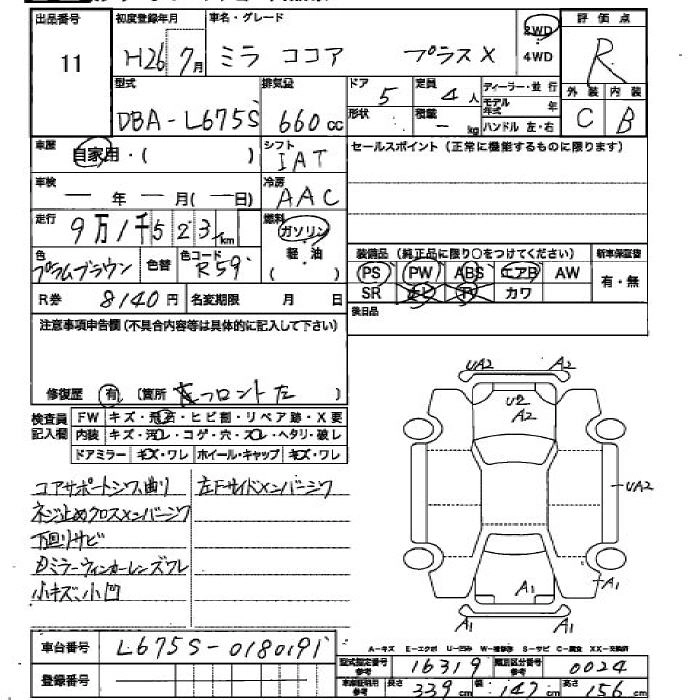 出品番号 初度登録年月 車名・グレード 2WD 評価点
11 H26/7月 ミラ ココア プラスX 4WD R
型式 排気量 ドア 定員 ディーラー・並行 外装 内装
DBA-L675S 660cc 5 4人 モデル年式 年 C B
形状 積載 - kg ハンドル 左・右
車歴 自家用・( ) シフト IAT セールスポイント(正常に機能するものに限ります)
車検 - 年 - 月(-日) 冷房 AAC
走行 9万1千523km 燃料 ガソリン
軽・油
( )
色 プラムブラウン 色替 色コード R59 装備品(純正品に限り○をつけてください) 新車保証書
PS PW ABS エアB AW 有・無
R券 8140円 名変期限 月 日 SR ナビ TV カワ
注意事項申告欄(不具合内容等は具体的に記入して下さい) 後日品
修復歴 有 (箇所 フロント左 )
検査員記入欄 FW キズ・飛石・ヒビ割・リペア跡・X要
内装 キズ・汚レ・コゲ・穴・スレ・ヘタリ・破レ
ドアミラー キズ・ワレ ホイール・キャップ キズ・ワレ
コアサポートシワ、曲り 左Fサイドメンバーシワ
ネジ止めクロスメンバーシワ
下回リサビ
ミラーウィンカーレンズワレ
小キズ、小凹
UA2 A2
U2
A2
UA2
A1
A1
A1 A1
車台番号 L675S-0180191
登録番号
A-キズ E-エクボ U-凹み W-補修跡 S-サビ C-腐食 XX-交換済
型式指定番号 参考 16319 類別区分番号 参考 0024
車庫証明用 参考 長さ 339cm 幅 147cm 高さ 156cm